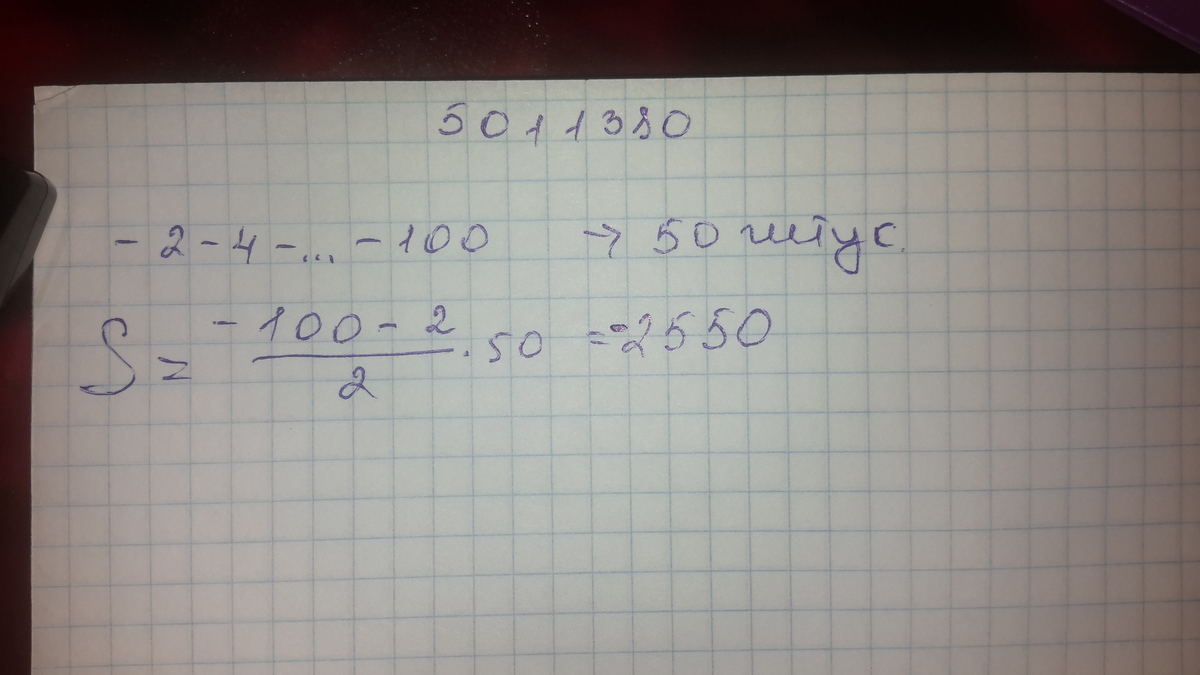 5011380
- 2 - 4 - ... - 100 → 50 штук.
S = (- 100 - 2)/2 · 50 = -2550